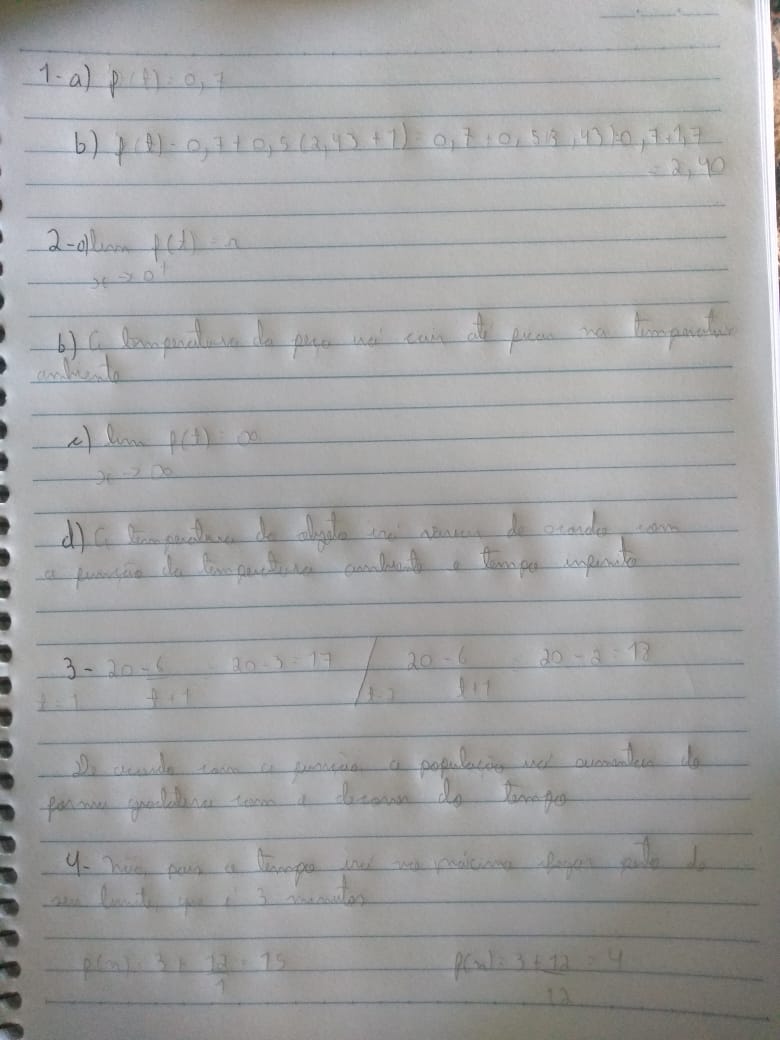 1-a) p(t) = 0,7
b) f(t) = 0,7 + 0,5(2,43 + 1) = 0,7 + 0,5(3,43) = 0,7 + 1,7
= 2,40
2-a) lim f(t) =
x → 0⁺
b) A temperatura da peça irá cair até ficar na temperatura
ambiente
c) lim f(t) = ∞
x → ∞
d) A temperatura do objeto irá variar de acordo com
a função da temperatura ambiente e tempo infinito
3 - 20 - 6 20 - 3 = 17 / 20 - 6 20 - 2 = 18
t = 1 t + 1 t + 1
De acordo com a função a população irá aumentar de
forma gradativa com o decorrer do tempo
4- Não, pois o tempo irá no máximo chegar perto do
seu limite, que é 3 minutos
p(n) = 3 + 12 = 15 p(n) = 3 + 12 = 4
1 12